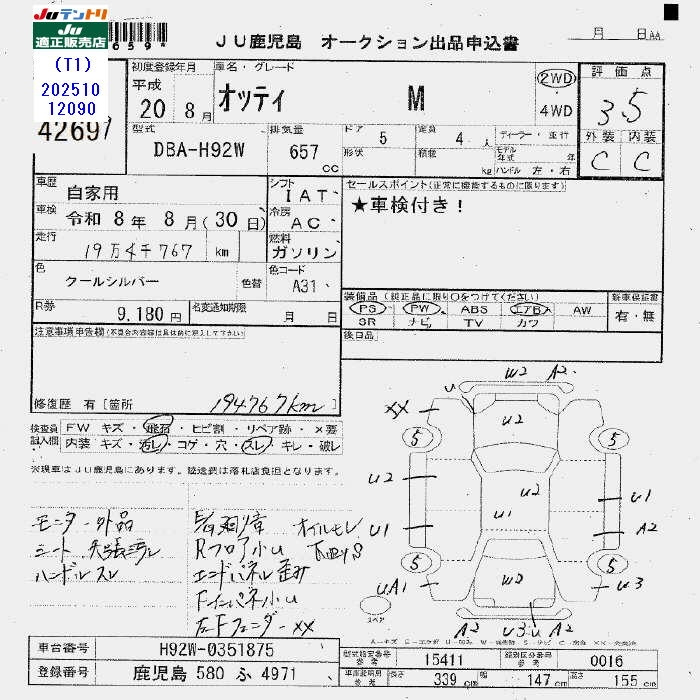 JUテントリ
JU
適正販売店
(T1)
202510
12090
42697
JU鹿児島 オークション出品申込書
月 日 AA
初度登録年月 車名・グレード
平成
20 8月 オッティ M
2WD
4WD
評価点
3.5
外装 内装
C C
型式
DBA-H92W
排気量
657 cc
ドア 5
形状
定員 4 人
積載 kg
ディーラー・並行
モデル年式 年
ハンドル 左・右
車歴 自家用
シフト IAT
車検 令和 8年 8月(30日)
冷房 AC
走行 19万4千767 km
燃料 ガソリン
色 クールシルバー 色替
色コード A31
R券 9,180円 名変通知期限 月 日
セールスポイント(正常に機能するものに限ります)
★車検付き!
装備品(純正品に限り○をつけてください)
PS PW ABS エアB AW
SR ナビ TV カワ
新車保証書
有・無
後日品
注意事項申告欄(不具合内容等は具体的に記入して下さい)
修復歴 有[箇所
194767km]
検査員記入欄
FW キズ・飛石・ヒビ割・リペア跡・×要
内装 キズ・汚レ・コゲ・穴・スレ・キレ・破レ
※現車はJU鹿児島にあります。陸送費は落札店負担となります。
モニター外品
シート 天張汚レ
ハンドルスレ
オイルモレ
Rフロア小U
エンドパネル歪み
Fインパネ小U
左Fフェンダー××
U2 A2
U
××
U2
5 5
U2 U2 U1
U1 U1 A2
5 5
UA1 W2 U3
スペア
A2 U3 U A2
車台番号 H92W-0351875
登録番号 鹿児島 580 ふ 4971
型式指定番号 15411 類別区分番号 0016
車両説明用 長さ 339 cm 幅 147 cm 高さ 155 cm